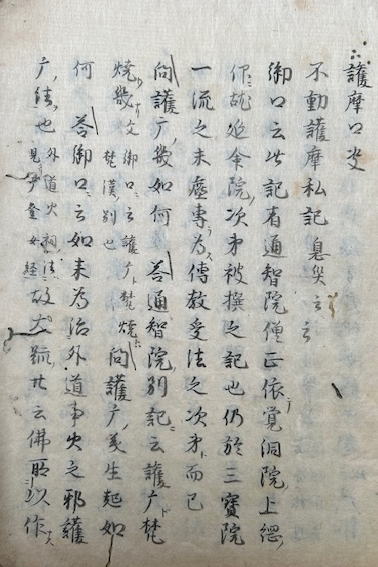 護摩口决
不動護摩私記 息災云云
御口云此記者通智院僧正依覚洞院上綱
作故延命院次才被撰之記也仍於三寳院
一流之末塵専為傳教受法之次才而已
問護广殿如何 荅通智院別記ニ云護广ト梵
焼殿ナリ文御口ニ云護广ト梵焼ト梵漢別也 問護广義生起如
何 荅御口ニ云如来為治外道事火之邪護
广法也外道火祠法見尹登女経故大䟽廿云佛自以作ス